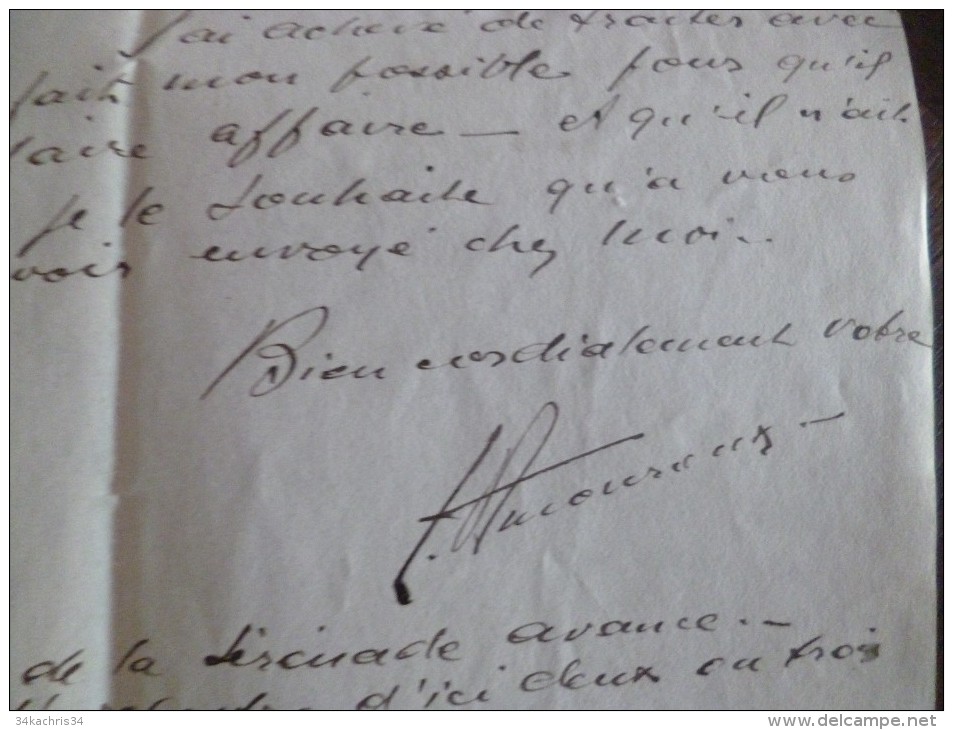 J'ai achevé de traiter avec
fait mon possible pour qu'il
faire affaire — et qu'il n'ait
je le souhaite qu'à vous
voir envoyé chez moi..
Bien cordialement votre
de la Sérénade avance.—
d'ici deux ou trois
34kachris34
www.delcampe.net